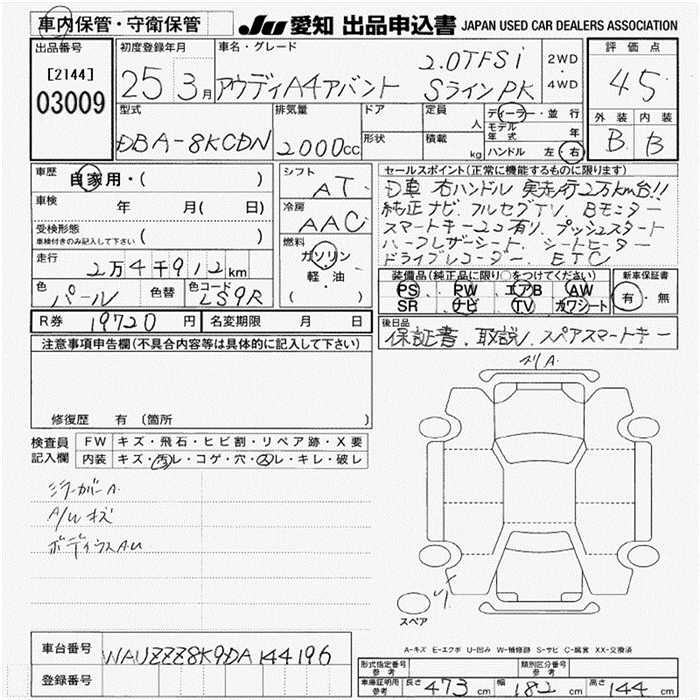 車内保管・守衛保管 JU 愛知 出品申込書 JAPAN USED CAR DEALERS ASSOCIATION
出品番号 初度登録年月 車名・グレード 評価点
[2144] 25 3月 アウディA4アバント 2.0TFSi 2WD・4WD 4.5
03009 SラインPK 外装 内装
型式 排気量 ドア 定員 人 ディーラー・並行 B B
DBA-8KCDN 2000cc 形状 積載 kg モデル年式 年
ハンドル 左・右
車歴 自家用・( ) シフト AT セールスポイント(正常に機能するものに限ります)
車検 年 月( 日) 冷房 AAC D車 右ハンドル 実走行2万km台!!
受検形態 ( ) 純正ナビ.フルセグTV Bモニター
車検付きのみ記入して下さい 燃料 スマートキー2コ有り.プッシュスタート
走行 2万4千912km ガソリン・軽・油 ハーフレザーシート.シートヒーター
( ) ドライブレコーダー.ETC
色 パール 色替 色コード LS9R 装備品(純正品に限り○をつけてください) 新車保証書
PS PW エアB AW 有・無
SR ナビ TV カワシート
R券 19720円 名変期限 月 日 後日品
保証書.取説.スペアスマートキー
注意事項申告欄(不具合内容等は具体的に記入して下さい)
修復歴 有(箇所
検査員記入欄 FW キズ・飛石・ヒビ割・リペア跡・X要
内装 キズ・汚レ・コゲ・穴・スレ・キレ・破レ
A/Wキズ
スペア
A-キズ E-エクボ U-凹み W-補修跡 S-サビ C-腐食 XX-交換済
車台番号 WAUZZZ8K9DA144196 型式指定番号 参考 類別区分番号 参考
登録番号 車庫証明用 参考 長さ 473cm 幅 182cm 高さ 144cm